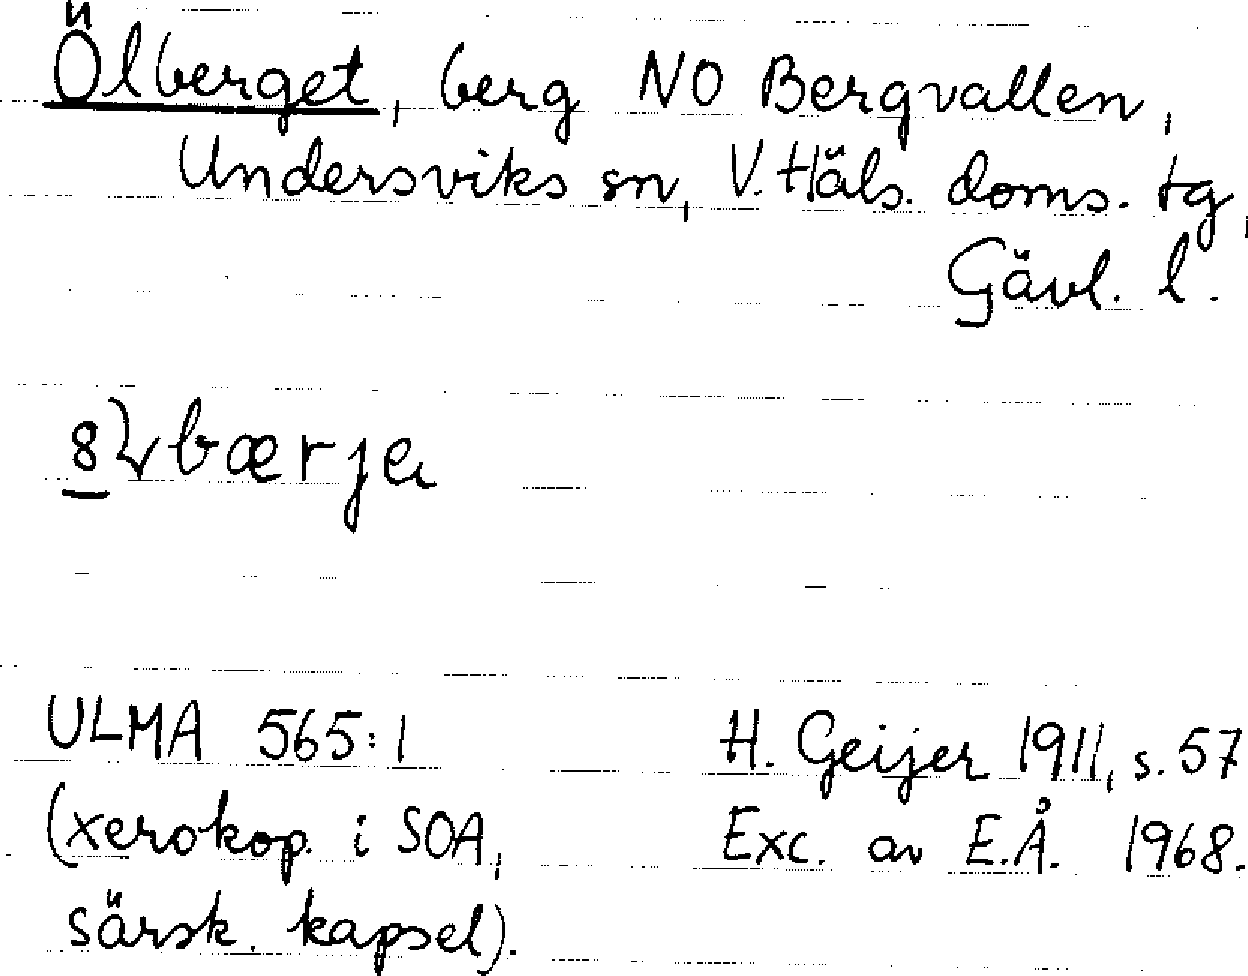 Ölberget, berg NO Bergvallen,
Undersviks sn, V. Häls. doms. tg,
Gävl. l.
ULMA 565:1
(xerokop. i SOA,
särsk. kapsel).
H. Geijer 1911, s. 57
Exc. av E.Å. 1968.